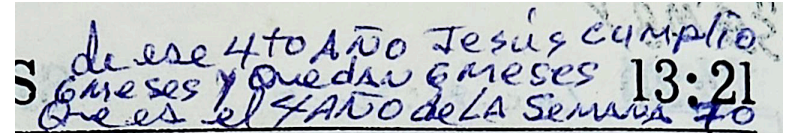 de ese 4to AÑO Jesús cumplio
S 6 meses y quedan 6 meses 13:21
Que es el 4 AÑO de LA Semana 70